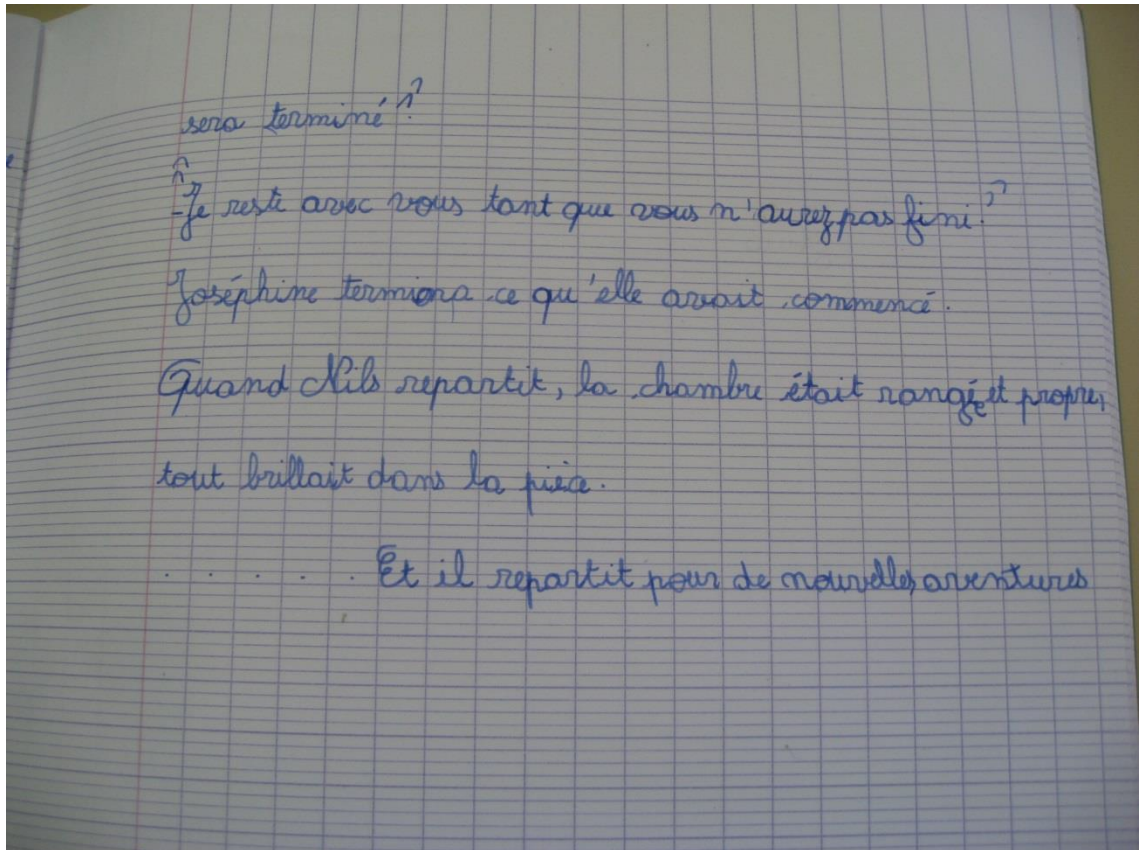 sera terminé ?
-Je reste avec vous tant que vous n'aurez pas fini.
Joséphine termiona ce qu'elle avait commencé.
Quand Nils repartit, la chambre était rangée et propre,
tout brillait dans la pièce.
. . . . . Et il repartit pour de nouvelles aventures